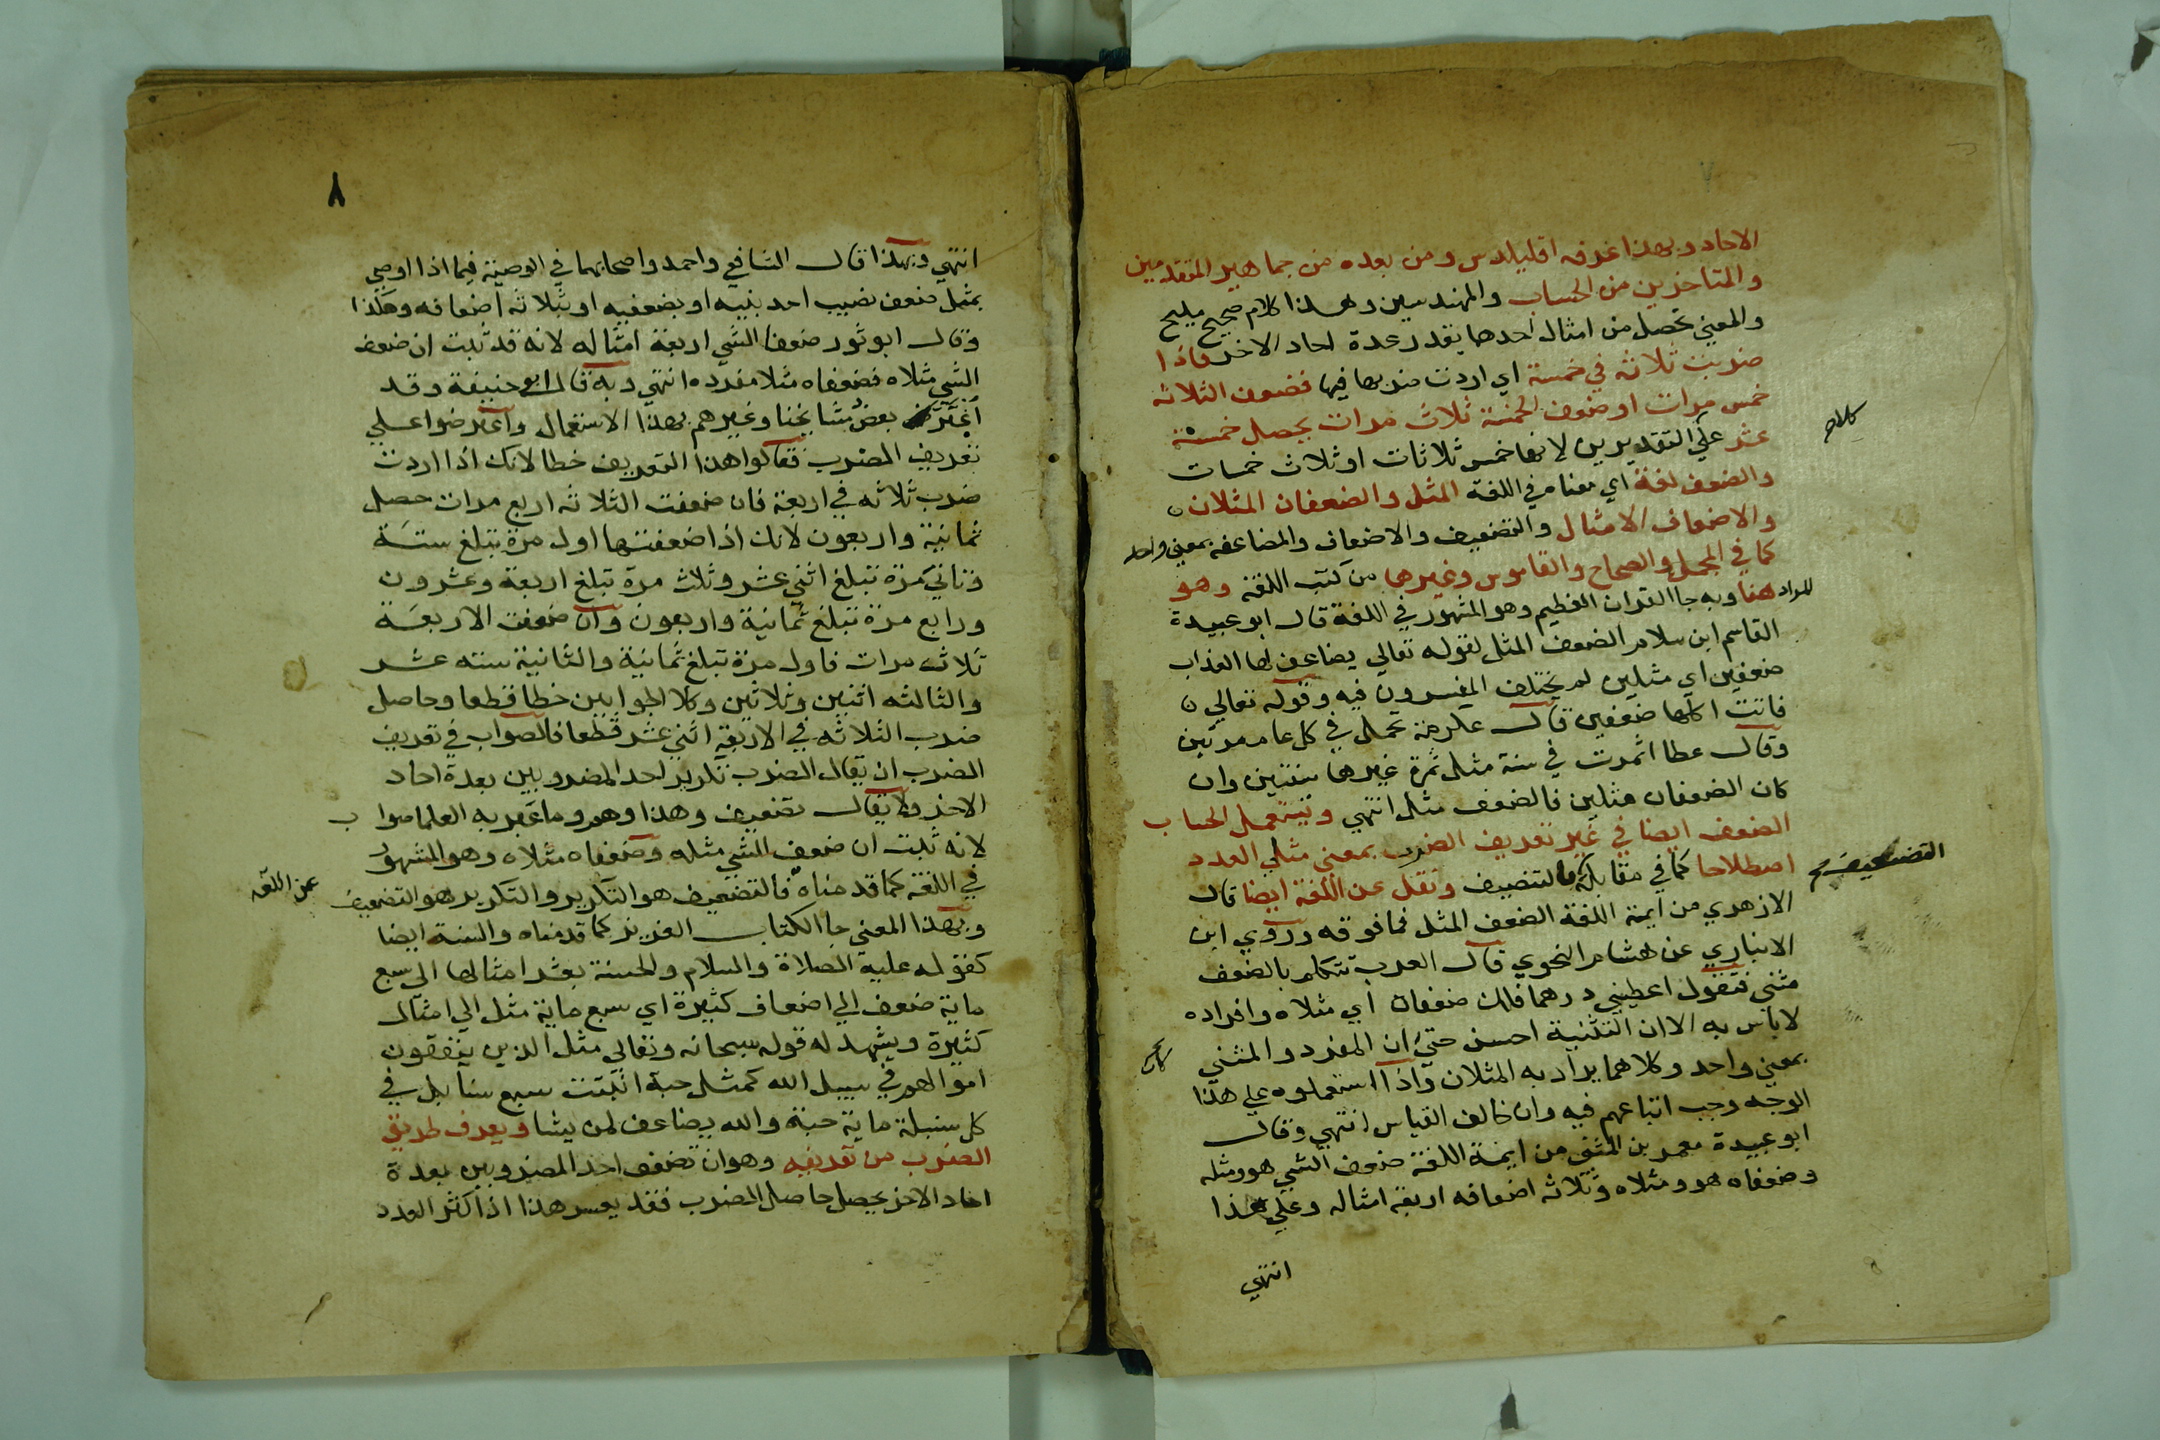 الاحاد وبهذا عرفه اقليدس ومن بعده من جماهير المتقدمين
والمتاخرين من الحساب والمهندسين وهذا كلام صحيح مليح
والمعني تحصل من امثال احدها بقدر عدة احاد الاخر فاذا
ضربت ثلاثه في خمسة اي اردت ضربها فيها فضعف الثلاثه
خمس مرات او ضعف الخمسة ثلاث مرات يحصل خمسة
عشر علي التقديرين لانها خمس ثلاثات او ثلاث خمسات
والضعف لغة اي معناه في اللغة المثل والضعفان المثلان
والاضعاف الامثال والتضعيف والاضعاف والمضاعفه بمعني واحد
كما في المجمل والصحاح والقاموس وغيرها من كتب اللغة وهو
المراد هنا وبه جا القران العظيم وهو المشهور في اللغة قال ابو عبيدة
القاسم ابن سلام الضعف المثل لقوله تعالي يضاعف لها العذاب
ضعفين اي مثلين لم يختلف المفسرون فيه وقوله تعالي
فاتت اكلها ضعفين قال عكرمة تحمل في كل عام مرتين
وقال عطا اثمرت في سنة مثل ثمرة غيرها سنتين وان
كان الضعفان مثلين فالضعف مثل انتهي ويستعمل الحساب
الضعف ايضا في غير تعريف الضرب بمعني مثلي العدد
التضعيف
اصطلاحا كما في مقابلة بالتنصيف ونقل عن اللغة ايضا قال
الازهري من ايمة اللغة الضعف المثل فما فوقه وروي ابن
الانباري عن هشام النحوي قال العرب تتكلم بالضعف
مثني فتقول اعطيني درهما فلك ضعفان اي مثلاه وافراده
لاباس به الا ان التثنية احسن حتي ان المفرد والمثني
بمعني واحد وكلاهما يراد به المثلان واذا استعملوه علي هذا
الوجه وجب اتباعهم فيه وان خالف القياس انتهي وقال
ابو عبيدة معمر بن المثني من ايمة اللغة ضعف الشي هو ومثله
وضعفاه هو ومثلاه وثلاثه اضعافه اربعة امثاله وعلي هذا
انتهي
٨
انتهي وبهذا قال الشافعي واحمد واصحابهما في الوصية فيما اذا اوصي
بمثل ضعف نصيب احد بنيه او بضعفيه او بثلاثه اضعافه وهكذا
وقال ابو ثور ضعفا الشي اربعة امثاله لانه قد ثبت ان ضعف
الشي مثلاه فضعفاه مثلا مفرده انتهي وبه قال ابو حنيفة وقد
اغتر بعض مشايخنا وغيرهم بهذا الاستعمال واعترضوا علي
تعريف الضرب فقالوا هذا التعريف خطا لانك اذا اردت
ضرب ثلاثه في اربعة فان ضعفت الثلاثه اربع مرات حصل
ثمانية واربعون لانك اذا ضعفتها اول مرة تبلغ ستة
وثاني مرة تبلغ اثني عشر وثلث مرة تبلغ اربعة وعشرون
ورابع مرة تبلغ ثمانية واربعون وان ضعفت الاربعة
ثلاث مرات فاول مرة تبلغ ثمانية والثانية سته عشر
والثالثه اثنين وثلاثين وكلا الجوابين خطا قطعا وحاصل
ضرب الثلاثه في الاربعة اثني عشر قطعا فالصواب في تعريف
الضرب ان يقال الضرب تكرير احد المضروبين بعدة احاد
الاخر ولا يقال تضعيف وهذا وهم وما عبر به العلما صواب
لانه ثبت ان ضعف الشي مثله وضعفاه مثلاه وهو المشهور
في اللغة كما قدمناه فالتضعيف هو التكرير والتكرير هو التضعيف
عن اللغه
وبهذا المعني جا الكتاب العزيز كما قدمناه والسنة ايضا
كقوله عليه الصلاة والسلام والحسنة بعشر امثالها الي سبع
ماية ضعف الي اضعاف كثيرة اي سبع ماية مثل الي امثال
كثيرة ويشهد له قوله سبحانه وتعالي مثل الذين ينفقون
اموالهم في سبيل الله كمثل حبة انبتت سبع سنابل في
كل سنبلة ماية حبة والله يضاعف لمن يشا ويعرف طريق
الضرب من تعريفه وهو ان تضعف احد المضروبين بعدة
احاد الاخر يحصل حاصل الضرب فقد يعسر هذا اذا كثر العدد